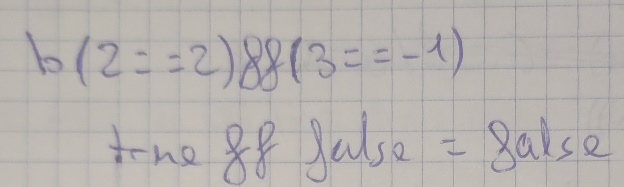 b(2==2)&&(3==-1)
true && false = false